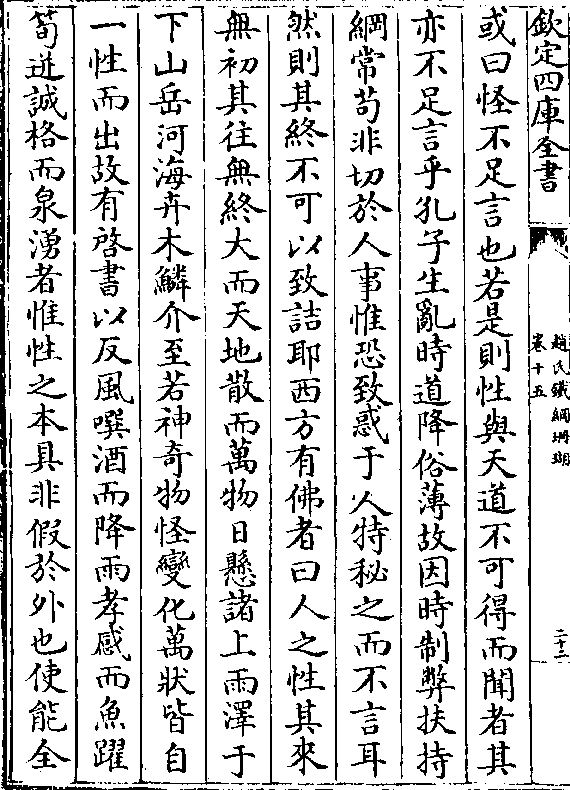 欽定四庫全書
趙氏鐵網珊瑚
卷十五
二十二
或曰怪不足言也若是則性與天道不可得而聞者其
亦不足言乎孔子生亂時道降俗薄故因時制弊扶持
綱常苟非切於人事惟恐致惑于人特秘之而不言耳
然則其終不可以致詰耶西方有佛者曰人之性其來
無初其往無終大而天地散而萬物日懸諸上雨澤于
下山岳河海卉木鱗介至若神奇物怪變化萬狀皆自
一性而出故有啓書以反風噀酒而降雨孝感而魚躍
筍迸誠格而泉湧者惟性之本具非假於外也使能全